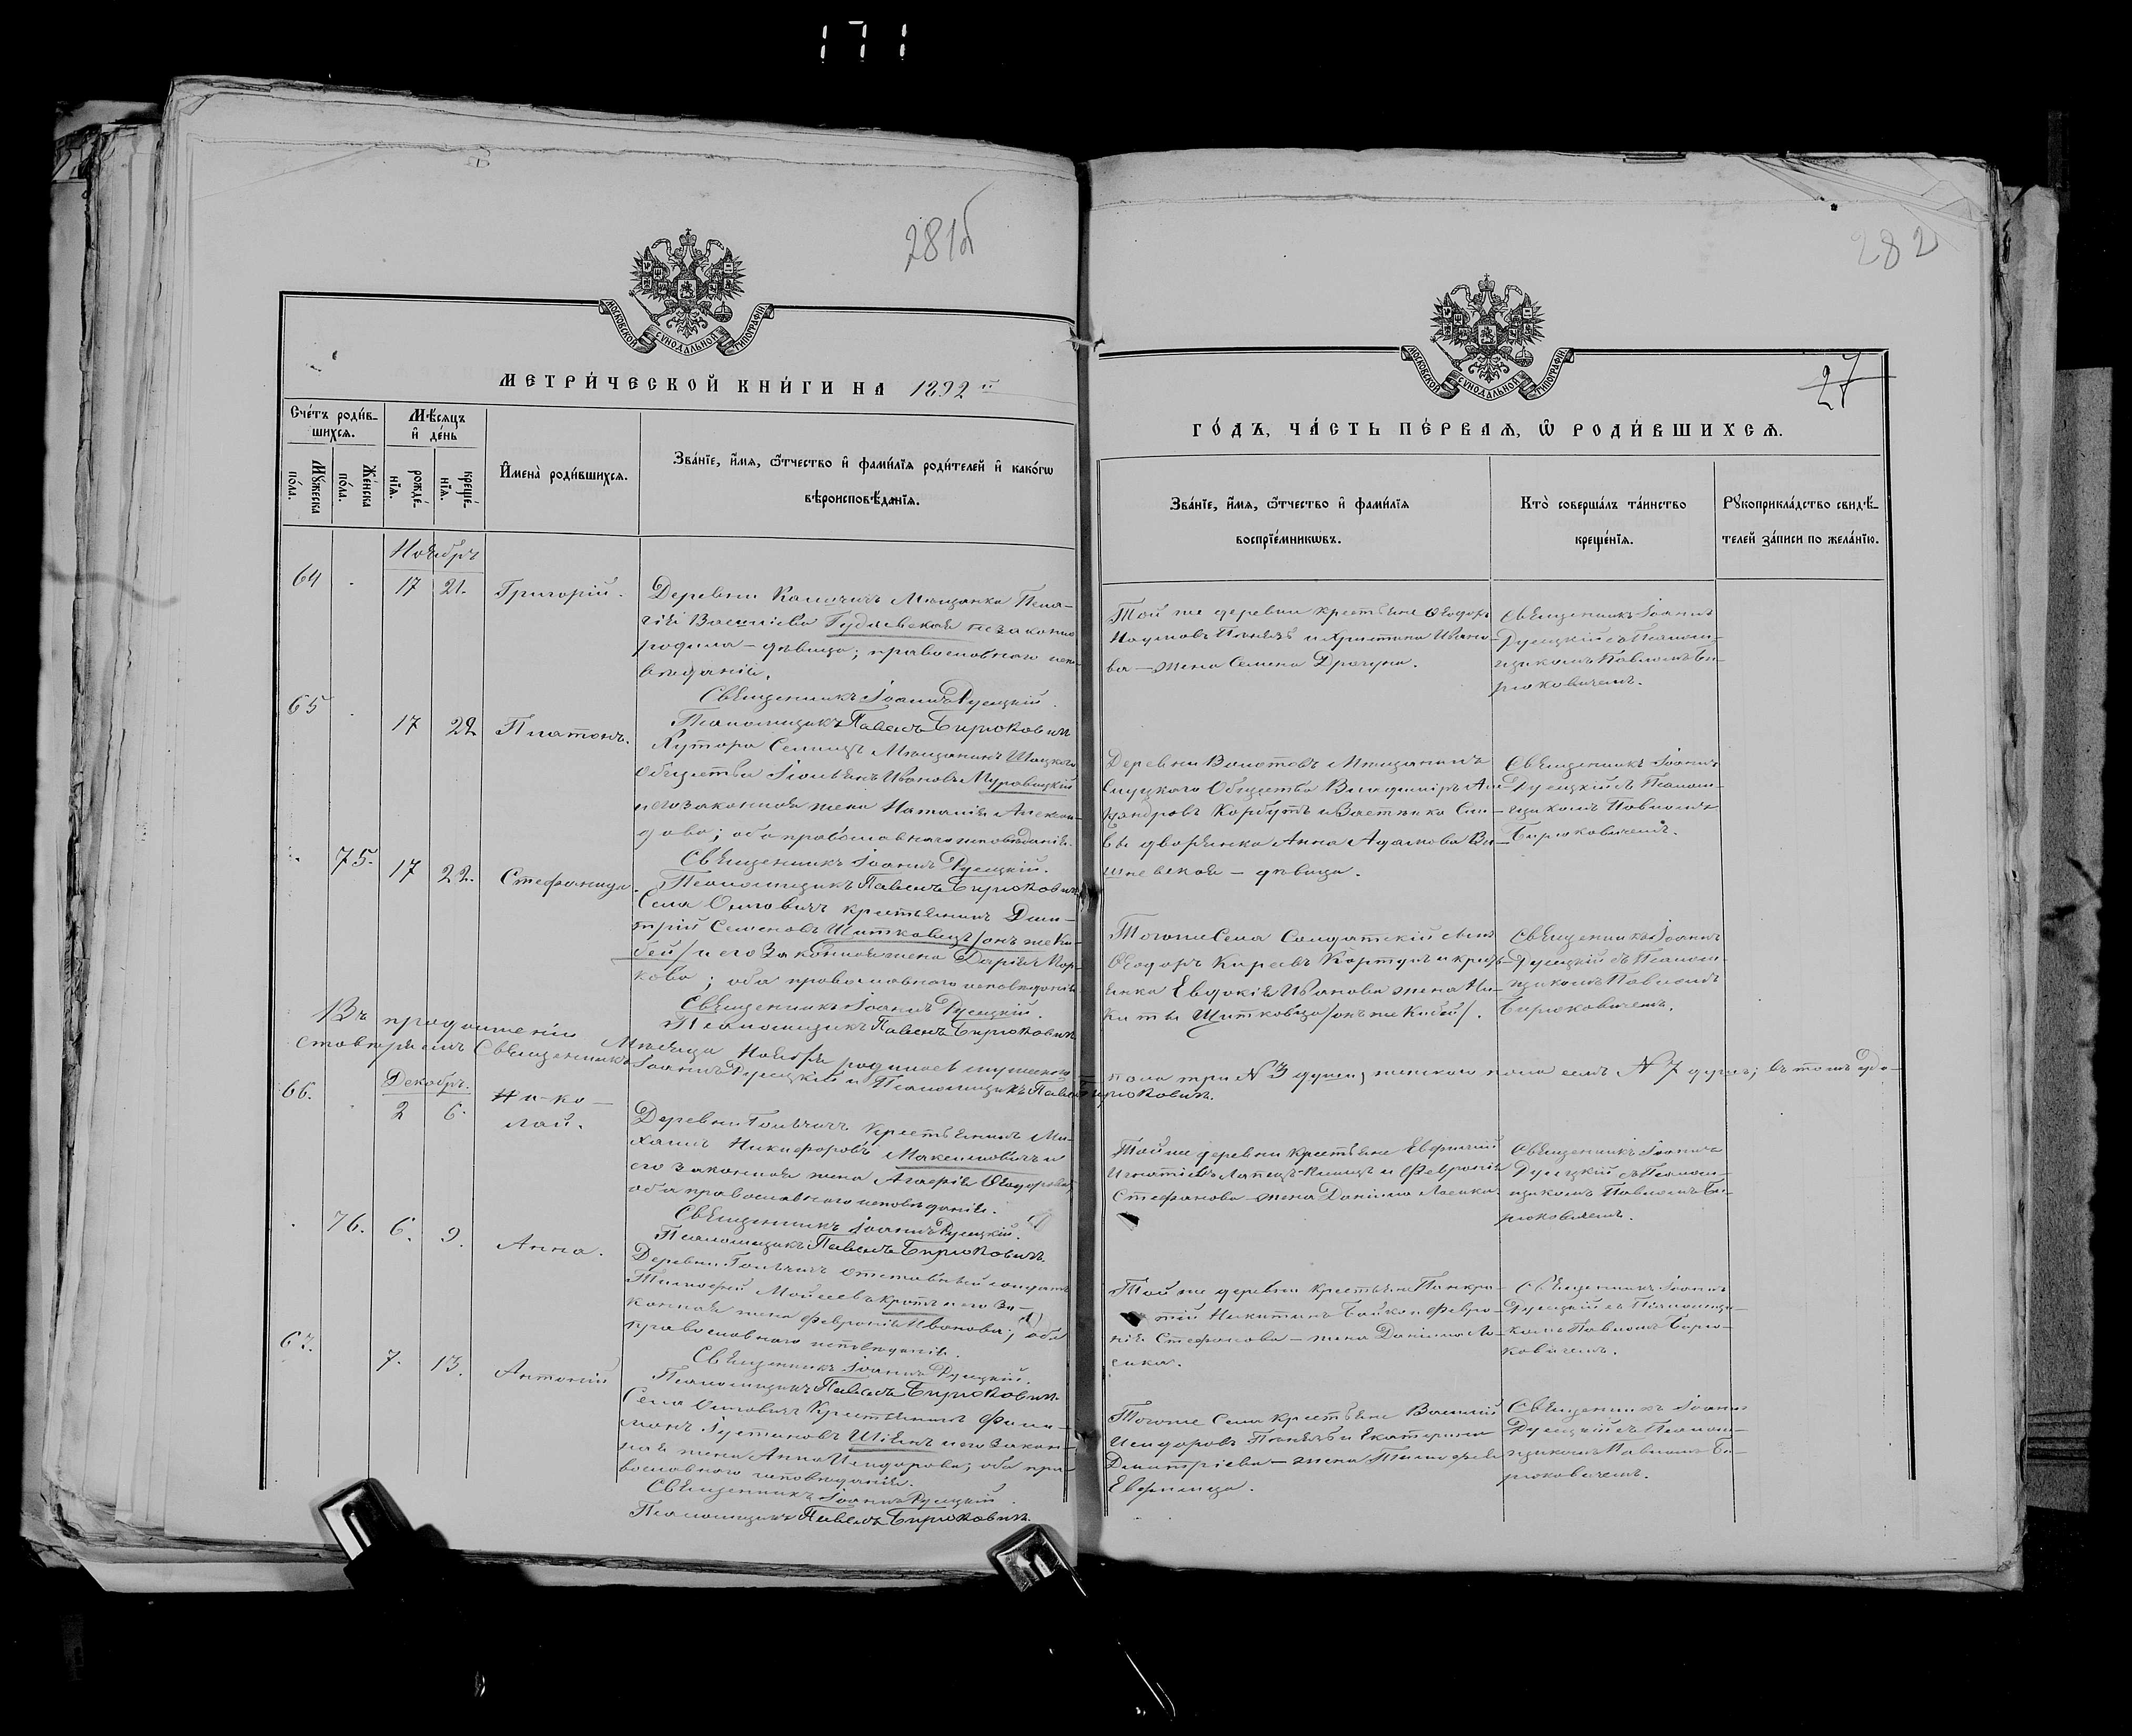 171
281б
МОСКОВСКОЙ СѴНОДАЛЬНОЙ ТИПОГРАФІИ
МЕТРИ́ЧЕСКОЙ КНИ́ГИ НА 1892 й
Сче́тъ роди́в-
шихсѧ.
Мѣ́сяцъ
и҆ де́нь
Мꙋ́жеска
по́ла.
Же́нска
по́ла.
рожде́-
нїѧ.
креще́-
нїѧ.
И҆мена̀ роди́вшихсѧ.
Зва́нїе, и҆́мѧ, ѻ҆́тчество и҆ фами́лїѧ роди́телей и҆ како́гѡ
вѣроисповѣ́данїѧ.
Ноябрь
64 17 21. Григорій.
Деревни Мѣщанка Пела-
гія Васильева Гудлевская незаконно
родила – дѣвица; православнаго испо-
вѣданія.
Священникъ Іоаннъ Русецкій.
Псаломщикъ Павелъ Бирюковичъ
65 17 22. Платонъ.
Хутора Селище Мѣщанинъ
Общества Іоаннъ Ивановъ Муравицкій
и его законная жена Наталія Алексан-
дрова; оба православнаго исповѣданія.
Священникъ Іоаннъ Русецкій.
Псаломщикъ Павелъ Бирюковичъ
75. 17 22. Стефанида.
Села Онговичъ крестьянинъ Дми-
трій Семеновъ Шитковецъ /онъ же Ки-
бей/ и его законная жена Дарія Мар-
кова; оба православнаго исповѣданія.
Священникъ Іоаннъ Русецкій.
Псаломщикъ Павелъ Бирюковичъ
Въ продолженіи Мѣсяца Ноября родилось мужеска
Священникъ Іоаннъ Русецкій и Псаломщикъ Павелъ Бирюковичъ.
Декабрь.
66. 2 6. Нико-
лай.
Деревни крестьянинъ Ми-
хаилъ Никифоровъ Максимовичъ и
его законная жена Агафія Ѳеодорова;
оба православнаго исповѣданія.
Священникъ Іоаннъ Русецкій.
Псаломщикъ Павелъ Бирюковичъ.
76. 6. 9. Анна.
Деревни отставный солдатъ
Тимофей Моисеевъ Кротъ и его за-
конная жена Февронія Иванова; оба
православнаго исповѣданія.
Священникъ Іоаннъ Русецкій.
Псаломщикъ Павелъ Бирюковичъ.
67. 7. 13. Антоній
Села Онговичъ крестьянинъ Фили-
монъ Іустиновъ и его закон-
ная жена Анна Исидорова; оба пра-
вославнаго исповѣданія.
Священникъ Іоаннъ Русецкій.
Псаломщикъ Павелъ Бирюковичъ.
282
27
МОСКОВСКОЙ СѴНОДАЛЬНОЙ ТИПОГРАФІИ
ГО́ДЪ, ЧА́СТЬ ПЕ́РВАѦ, Ѡ҆ РОДИ́ВШИХСѦ.
Зва́нїе, и҆́мѧ, ѻ҆́тчество и҆ фами́лїѧ
воспрїе́мникѡвъ.
Кто̀ соверша́лъ та́инство
креще́нїѧ.
Рꙋкоприкла́дство свидѣ́-
телей за́писи по жела́нїю.
Той же деревни крестьяне Ѳеодоръ
Наумовъ и Христина Ивано-
ва – жена Семена Драгуна.
Священникъ Іоаннъ
Русецкій съ Псалом-
щикомъ Павломъ Би-
рюковичемъ.
Деревни Мѣщанинъ
Слуцкаго Общества Владиміръ Але-
ксандровъ Корбутъ и
дворянка Анна Адамова Ви-
шневская – дѣвица.
Священникъ Іоаннъ
Русецкій съ Псалом-
щикомъ Павломъ
Бирюковичемъ.
Того же Села Солдатскій сынъ
Ѳеодоръ и кресть-
янка Евдокія Иванова жена Ни-
киты Шитковца /онъ же Кибей/.
Священникъ Іоаннъ
Русецкій съ Псалом-
щикомъ Павломъ
Бирюковичемъ.
пола три № 3 души, женскаго пола семь № 7 душъ; въ томъ удо-
стовѣряемъ
Той же деревни крестьяне
Игнатіевъ и Февронія
Стефанова – жена Даніила
Священникъ Іоаннъ
Русецкій съ Псалом-
щикомъ Павломъ Би-
рюковичемъ.
Той же деревни крестьяне Панкра-
тій Никитинъ Бойко и Февро-
нія Стефанова – жена Даніила
Священникъ Іоаннъ
Русецкій съ Псаломщи-
комъ Павломъ Бирю-
ковичемъ.
Того же Села крестьяне Василій
Исидоровъ и Екатерина
Димитріева – жена Тимофея
Священникъ Іоаннъ
Русецкій съ Псалом-
щикомъ Павломъ Би-
рюковичемъ.